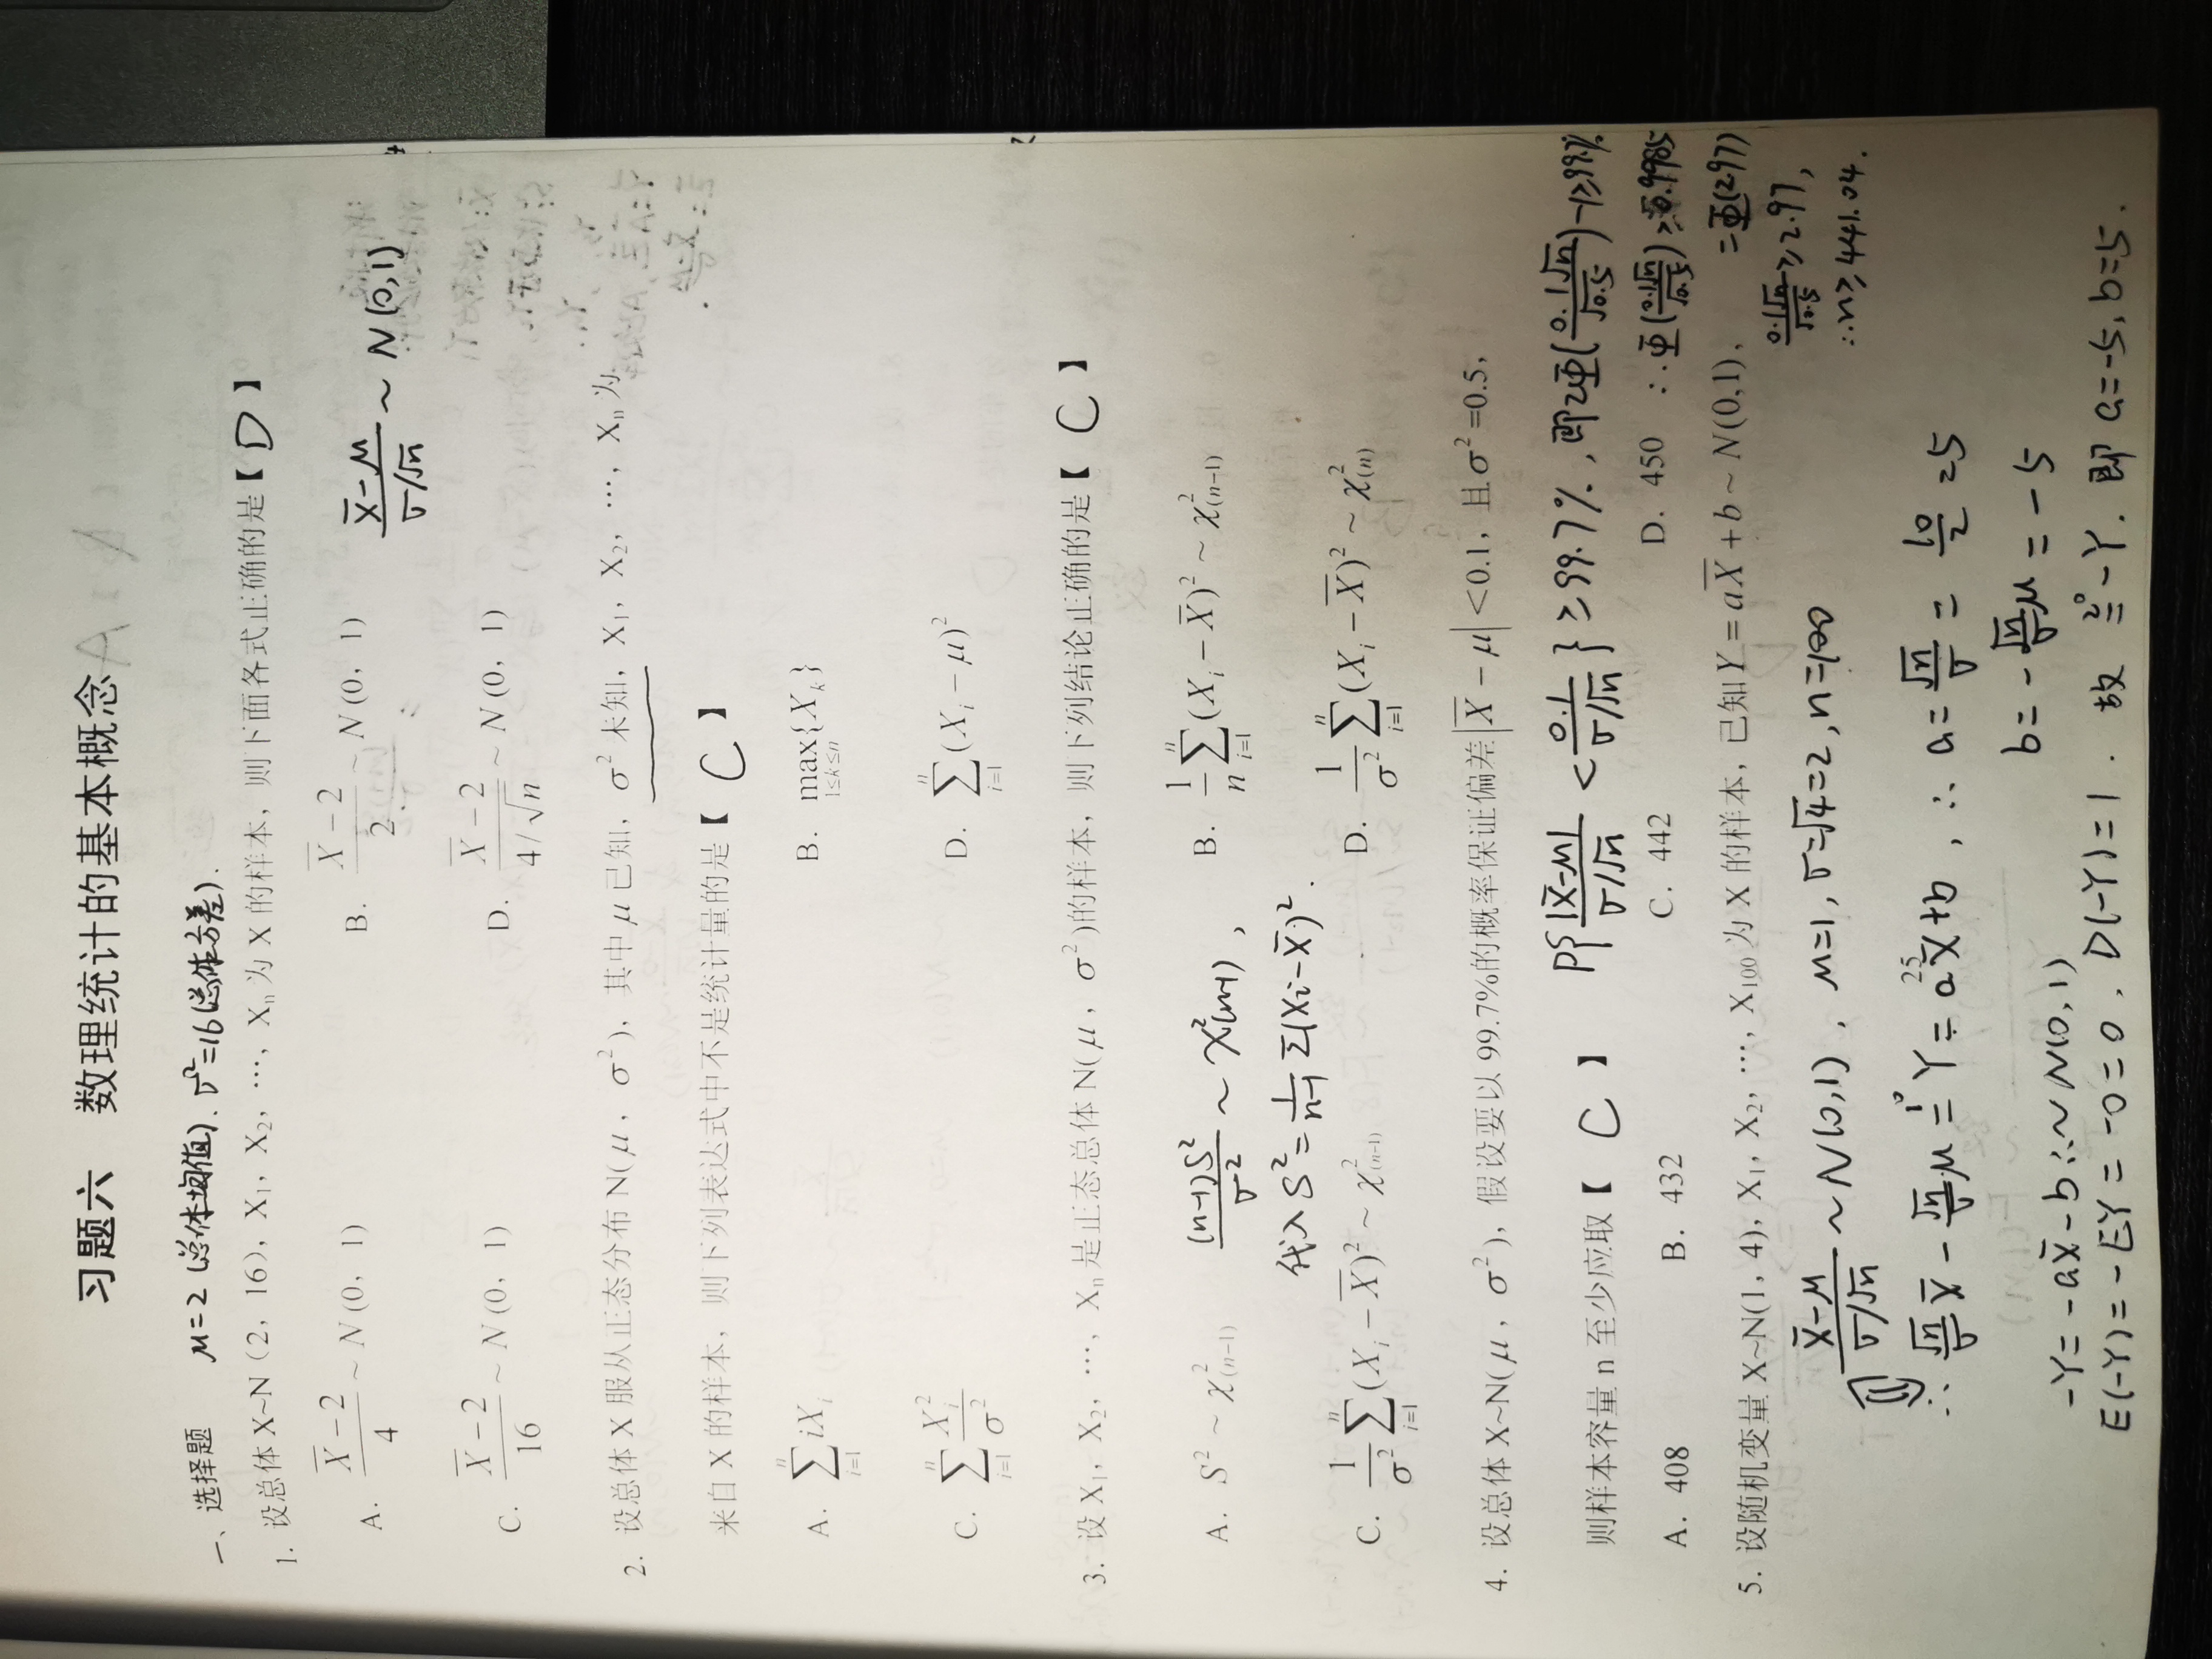 习题六 数理统计的基本概念
一、选择题 μ=2 (总体均值). σ²=16(总体方差).
1. 设总体 X~N（2，16），X₁，X₂，…，Xₙ 为 X 的样本，则下面各式正确的是【 D 】
A. (X̄－2)/4 ~ N(0，1) B. (X̄－2)/2 ~ N(0，1) (X̄-μ)/(σ/√n) ~ N(0,1)
C. (X̄－2)/16 ~ N(0，1) D. (X̄－2)/(4/√n) ~ N(0，1)
2. 设总体 X 服从正态分布 N(μ，σ²)，其中 μ 已知，σ² 未知，X₁，X₂，…，Xₙ 为
来自 X 的样本，则下列表达式中不是统计量的是【 C 】
A. ∑_{i=1}^{n} iX_i B. max_{1≤k≤n}{X_k}
C. ∑_{i=1}^{n} X_i²/σ² D. ∑_{i=1}^{n}(X_i－μ)²
3. 设 X₁，X₂，…，Xₙ 是正态总体 N(μ，σ²)的样本，则下列结论正确的是【 C 】
A. S² ~ χ²_{(n-1)} (n-1)S²/σ² ~ χ²(n-1)， B. (1/n)∑_{i=1}^{n}(X_i－X̄)² ~ χ²_{(n-1)}
代入 S²=(1/(n-1)) Σ(Xi-X̄)².
C. (1/σ²)∑_{i=1}^{n}(X_i－X̄)² ~ χ²_{(n-1)} D. (1/σ²)∑_{i=1}^{n}(X_i－X̄)² ~ χ²_{(n)}
4. 设总体 X~N(μ，σ²)，假设要以 99.7%的概率保证偏差|X̄－μ|<0.1，且 σ²=0.5，
则样本容量 n 至少应取【 C 】 P{|X̄-μ|/(σ/√n) < 0.1/(σ/√n)} ≥99.7%，即2Φ(0.1√n/√0.5)-1≥99.7%
A. 408 B. 432 C. 442 D. 450 ∴Φ(0.1√n/√0.5)≥0.9985
5. 设随机变量 X~N(1，4)，X₁，X₂，…，X₁₀₀ 为 X 的样本，已知 Y=aX̄+b ~ N(0,1)，
=Φ(2.97)
0.1√n/√0.5≥2.97,
∴n≥441.04.
(X̄-μ)/(σ/√n) ~N(0,1)，μ=1，σ=√4=2，n=100
∴ (√n/σ)X̄-(√n/σ)μ =¹° Y=aX̄+b，∴ a=√n/σ=10/2=5
25
b=-(√n/σ)μ=-5
-Y=-aX̄-b∴~N(0,1)
E(-Y)=-EY=-0=0，D(-Y)=1. 故 =²° -Y. 即 a=-5,b=5.